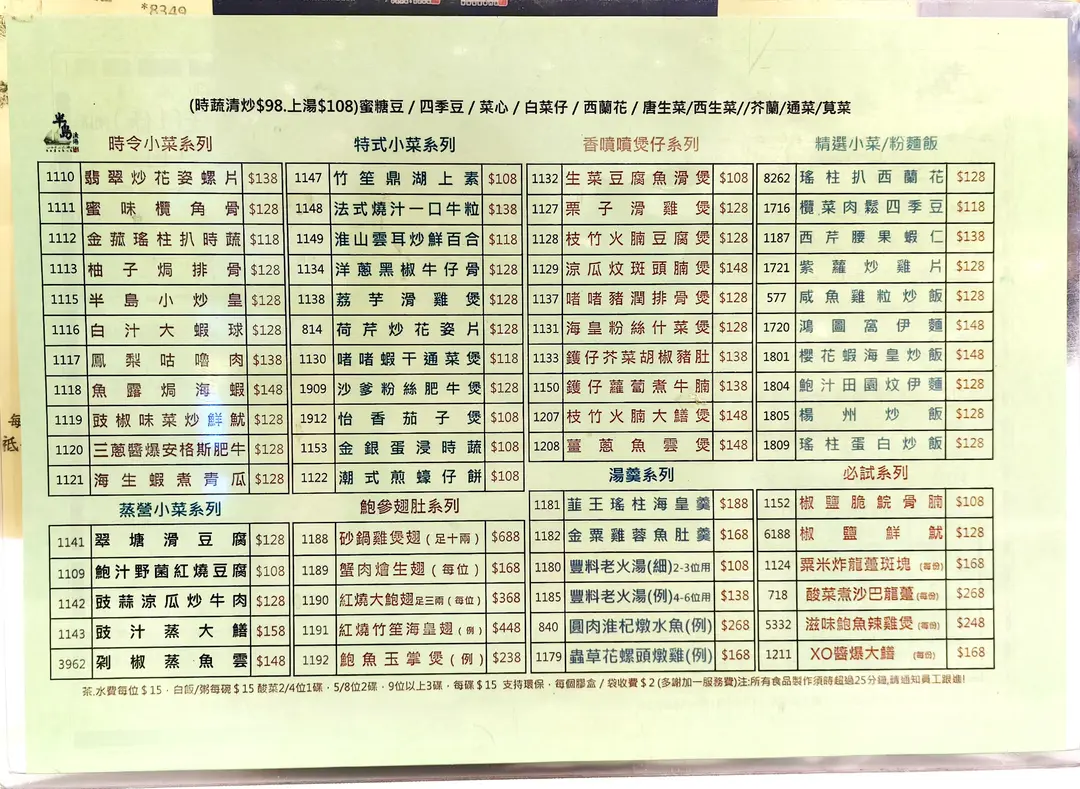 *8349
(時蔬清炒$98.上湯$108)蜜糖豆 / 四季豆 / 菜心 / 白菜仔 / 西蘭花 / 唐生菜/西生菜//芥蘭/通菜/莧菜
半島
時令小菜系列
1110 翡翠炒花姿螺片 $138
1111 蜜味欖角骨 $128
1112 金菰瑤柱扒時蔬 $118
1113 柚子焗排骨 $128
1115 半島小炒皇 $128
1116 白汁大蝦球 $128
1117 鳳梨咕嚕肉 $138
1118 魚露焗海蝦 $148
1119 豉椒味菜炒鮮魷 $128
1120 三蔥醬爆安格斯肥牛 $128
1121 海生蝦煮青瓜 $128
蒸營小菜系列
1141 翠塘滑豆腐 $128
1109 鮑汁野菌紅燒豆腐 $108
1142 豉蒜涼瓜炒牛肉 $128
1143 豉汁蒸大鱔 $158
3962 剁椒蒸魚雲 $148
特式小菜系列
1147 竹笙鼎湖上素 $108
1148 法式燒汁一口牛粒 $138
1149 淮山雲耳炒鮮百合 $118
1134 洋蔥黑椒牛仔骨 $128
1138 荔芋滑雞煲 $128
814 荷芹炒花姿片 $128
1130 啫啫蝦干通菜煲 $118
1909 沙爹粉絲肥牛煲 $128
1912 怡香茄子煲 $108
1153 金銀蛋浸時蔬 $108
1122 潮式煎蠔仔餅 $108
鮑參翅肚系列
1188 砂鍋雞煲翅(足十兩) $688
1189 蟹肉燴生翅(每位) $168
1190 紅燒大鮑翅足三兩(每位) $368
1191 紅燒竹笙海皇翅(例) $448
1192 鮑魚玉掌煲(例) $238
香噴噴煲仔系列
1132 生菜豆腐魚滑煲 $108
1127 栗子滑雞煲 $128
1128 枝竹火腩豆腐煲 $128
1129 涼瓜炆斑頭腩煲 $148
1137 啫啫豬潤排骨煲 $128
1131 海皇粉絲什菜煲 $128
1133 鑊仔芥菜胡椒豬肚 $138
1150 鑊仔蘿蔔煮牛腩 $138
1207 枝竹火腩大鱔煲 $148
1208 薑蔥魚雲煲 $148
湯羹系列
1181 韮王瑤柱海皇羹 $188
1182 金粟雞蓉魚肚羹 $168
1180 豐料老火湯(細)2-3位用 $108
1185 豐料老火湯(例)4-6位用 $138
840 圓肉淮杞燉水魚(例) $268
1179 蟲草花螺頭燉雞(例) $168
精選小菜/粉麵飯
8262 瑤柱扒西蘭花 $128
1716 欖菜肉鬆四季豆 $118
1187 西芹腰果蝦仁 $138
1721 紫蘿炒雞片 $128
577 咸魚雞粒炒飯 $128
1720 鴻圖窩伊麵 $148
1801 櫻花蝦海皇炒飯 $148
1804 鮑汁田園炆伊麵 $128
1805 楊州炒飯 $128
1809 瑤柱蛋白炒飯 $128
必試系列
1152 椒鹽脆鯇骨腩 $108
6188 椒鹽鮮魷 $128
1124 粟米炸龍躉斑塊(每份) $168
718 酸菜煮沙巴龍躉(每份) $268
5332 滋味鮑魚辣雞煲(每份) $248
1211 XO醬爆大鱔(每份) $168
茶.水費每位$15．白飯/粥每碗$15 酸菜2/4位1碟．5/8位2碟．9位以上3碟．每碟$15 支持環保．每個膠盒 / 袋收費$2(多謝加一服務費)注:所有食品製作須時超過25分鐘,請通知員工跟進!